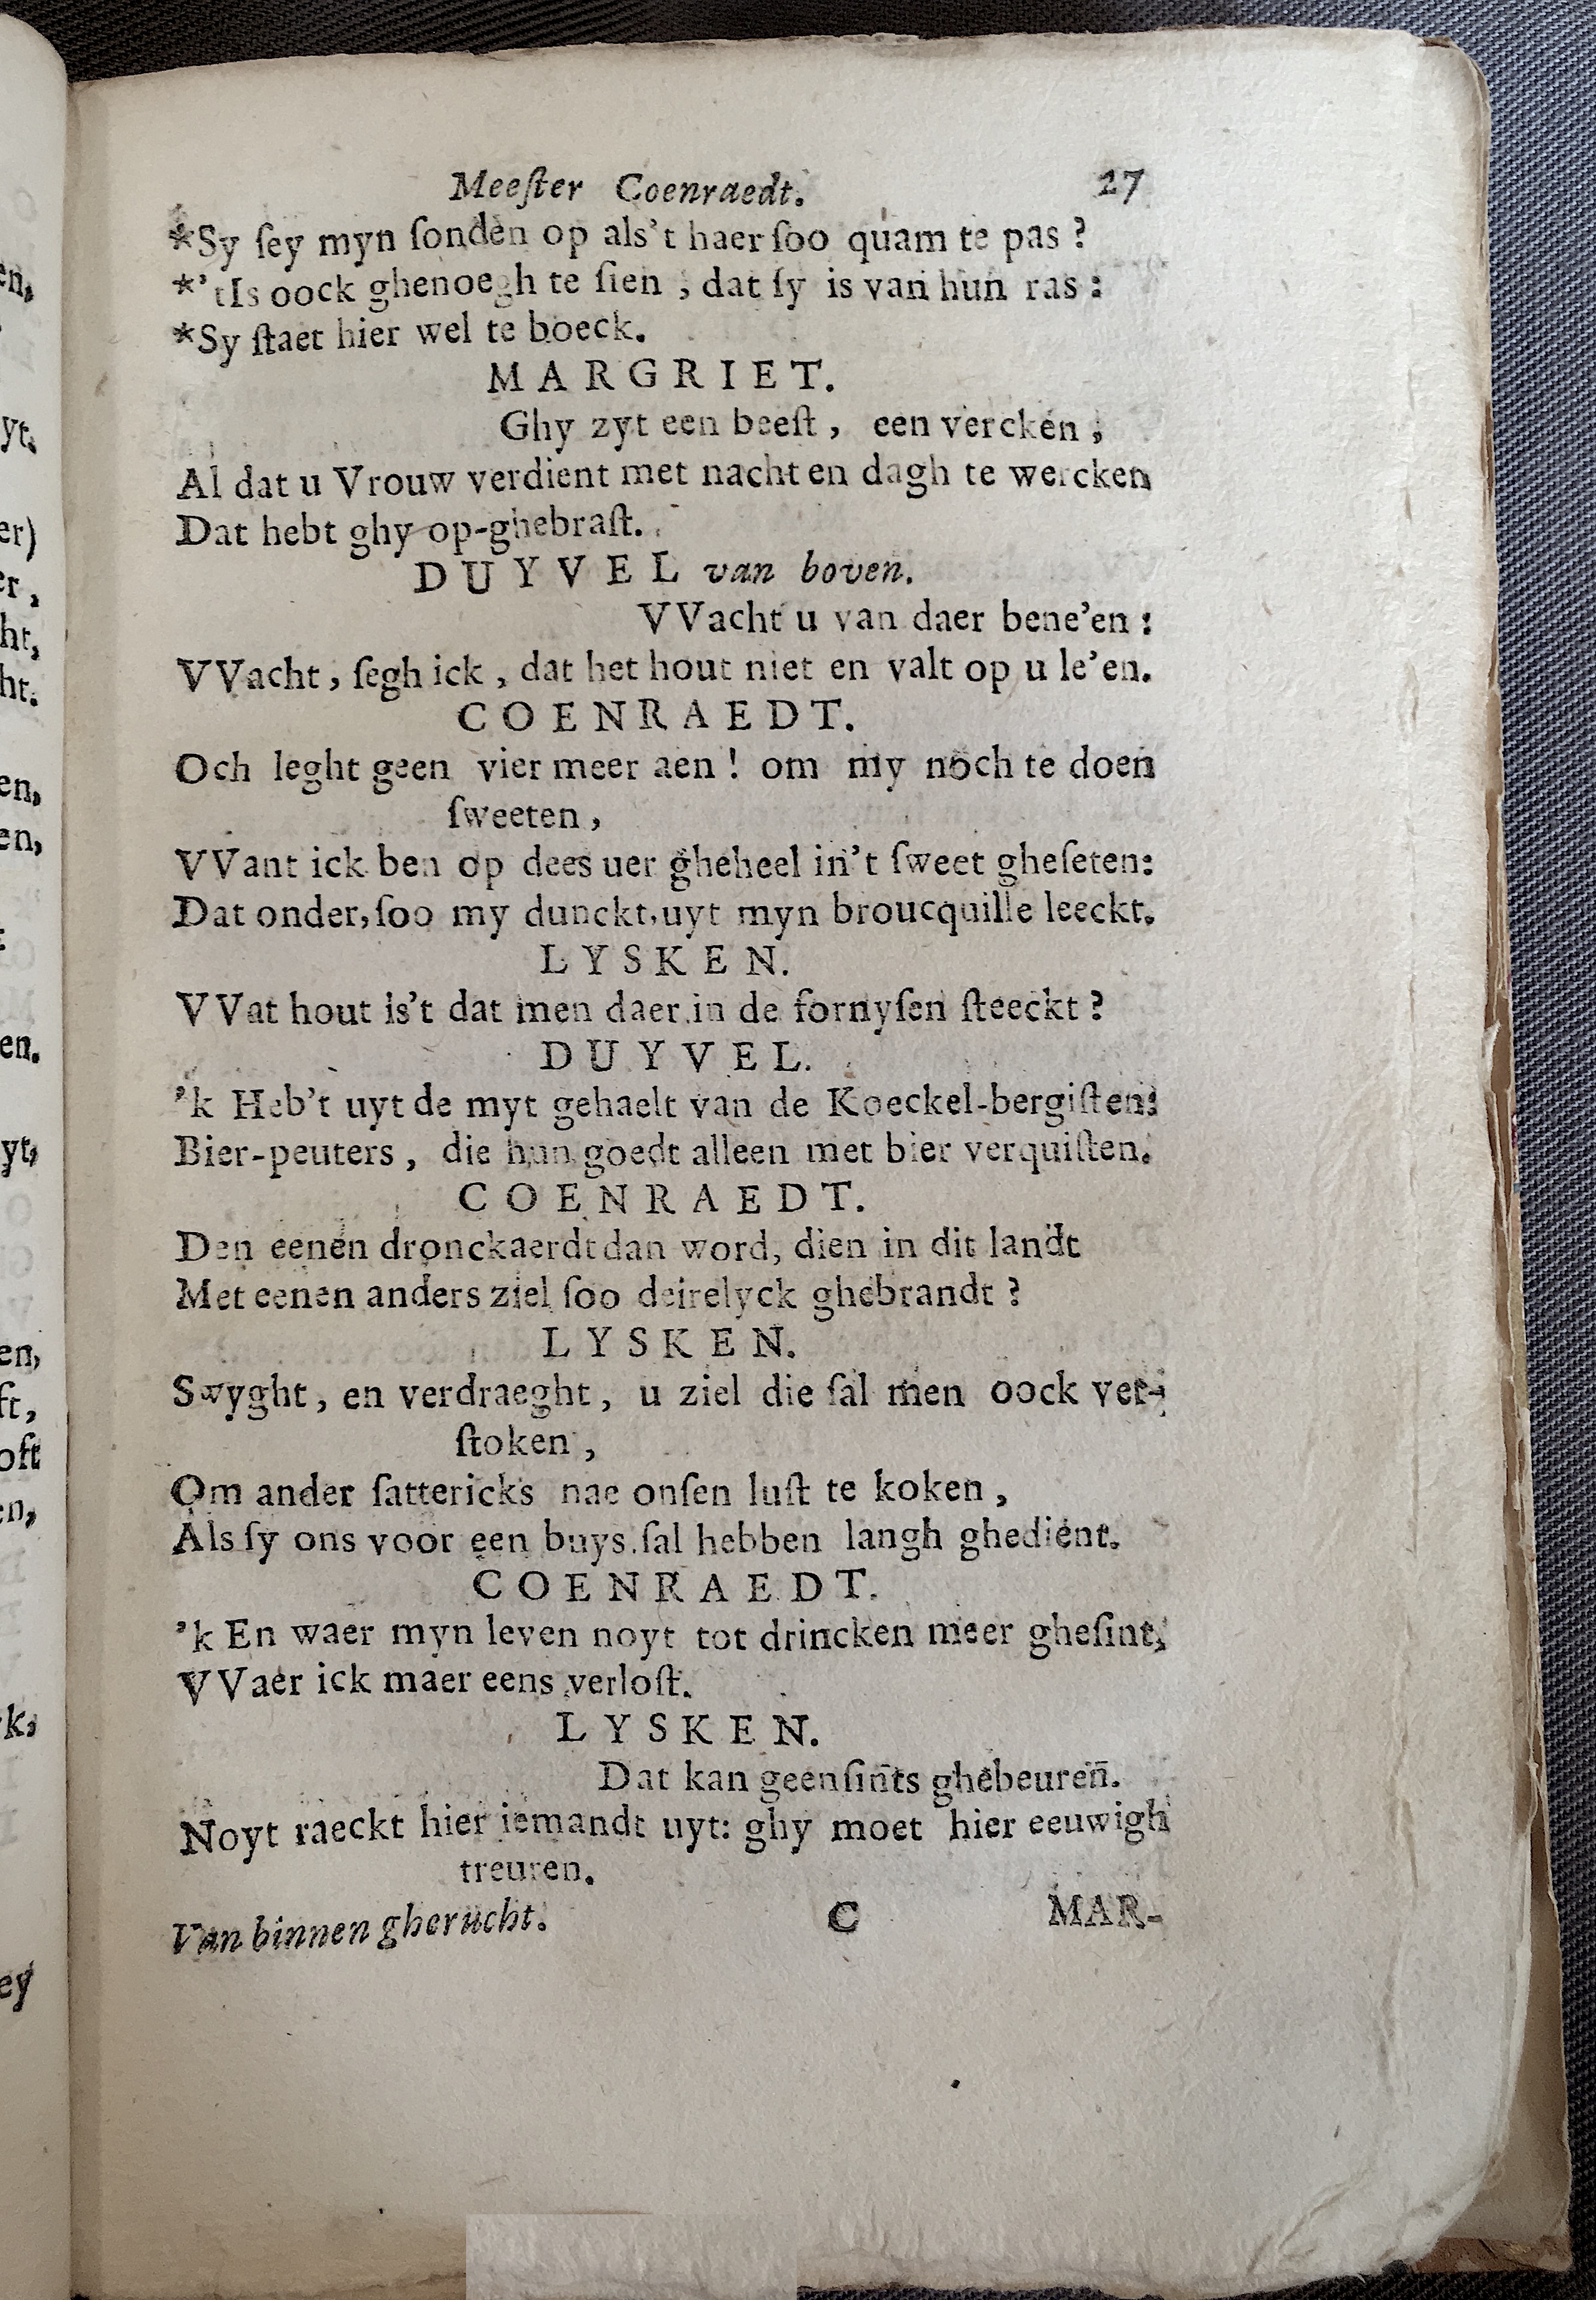 Meeſter Coenraedt. 27
*Sy ſey myn ſonden op als't haer ſoo quam te pas ?
*'tIs oock ghenoegh te ſien ; dat ſy is van hun ras :
*Sy ſtaet hier wel te boeck.
MARGRIET.
Ghy zyt een beeſt , een vercken ;
Al dat u Vrouw verdient met nacht en dagh te wercken
Dat hebt ghy op-ghebraſt.
DUYVEL van boven.
VVacht u van daer bene'en :
VVacht , ſegh ick , dat het hout niet en valt op u le'en.
COENRAEDT.
Och leght geen vier meer aen ! om my noch te doen
ſweeten ,
VVant ick ben op dees uer gheheel in't ſweet gheſeten:
Dat onder, ſoo my dunckt, uyt myn broucquille leeckt.
LYSKEN.
VVat hout is't dat men daer in de fornyſen ſteeckt ?
DUYVEL.
'k Heb't uyt de myt gehaelt van de Koeckel-bergiſten:
Bier-peuters , die hun goedt alleen met bier verquiſten.
COENRAEDT.
Den eenen dronckaerdt dan word, dien in dit landt
Met eenen anders ziel ſoo deirelyck ghebrandt ?
LYSKEN.
Swyght , en verdraeght , u ziel die ſal men oock ver-
ſtoken ,
Om ander ſattericks nae onſen luſt te koken ,
Als ſy ons voor een buys ſal hebben langh ghedient.
COENRAEDT.
'k En waer myn leven noyt tot drincken meer gheſint,
VVaer ick maer eens verloſt.
LYSKEN.
Dat kan geenſin̄ts ghebeuren̄.
Noyt raeckt hier iemandt uyt: ghy moet hier eeuwigh
treuren.
Van binnen gherucht. C MAR-
en,
yt.
er)
er ,
ht,
ht.
en,
en,
en.
yt,
en,
ſt,
oft
en,
k,
ey